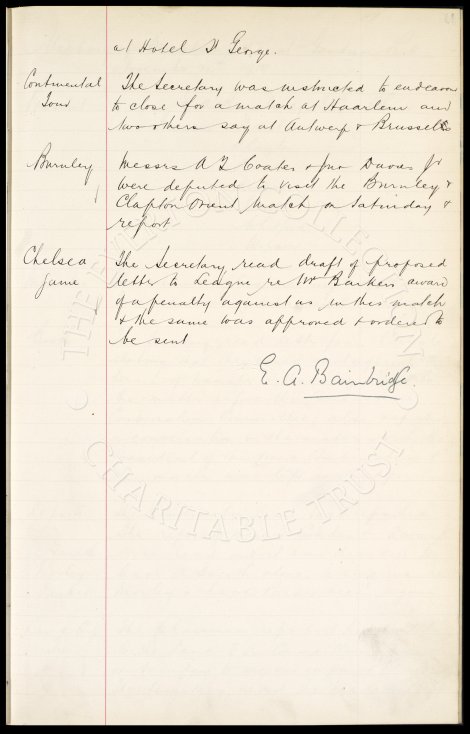 at Hotel St George.
Continental
Tour
The Secretary was instructed to endeavour
to close for a match at Haarlem and
two others say at Antwerp & Brussels
Burnley
Messrs A T Coates & Jno Davies Jr
were deputed to visit the Burnley v
Clapton Orient match on Saturday &
report
Chelsea
game
The Secretary read draft of proposed
letter to League re Mr Barkers award
of a penalty against us in this match
& the same was approved & ordered to
be sent
E. A. Bainbridge.
CHARITABLE TRUST